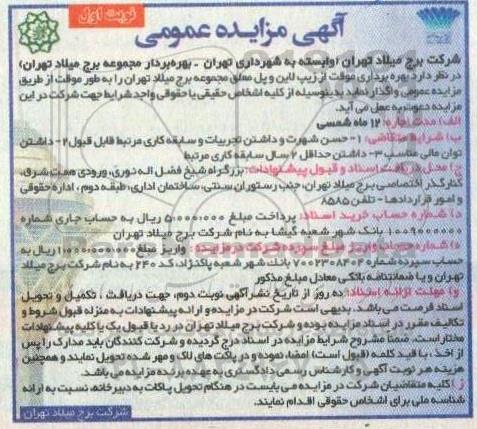 نوبت اول
آگهی مزایده عمومی
شرکت برج میلاد تهران (وابسته به شهرداری تهران - بهره‌بردار مجموعه برج میلاد تهران)
در نظر دارد بهره برداری موقت از زیپ لاین و پل معلق مجموعه برج میلاد تهران را به طور موقت از طریق
مزایده عمومی واگذار نماید بدینوسیله از کلیه اشخاص حقیقی یا حقوقی واجد شرایط جهت شرکت در این
مزایده دعوت به عمل می آید.
الف) مدت اجاره: ۱۲ ماه شمسی
ب) شرایط متقاضی: ۱- حسن شهرت و داشتن تجربیات و سابقه کاری مرتبط قابل قبول ۲- داشتن
توان مالی مناسب ۳- داشتن حداقل ۲ سال سابقه کاری مرتبط
ج) محل دریافت اسناد و قبول پیشنهادات: بزرگراه شیخ فضل اله نوری، ورودی همت شرق،
کنارگذر اختصاصی برج میلاد تهران، جنب رستوران سنتی، ساختمان اداری، طبقه دوم، اداره حقوقی
و امور قراردادها - تلفن ۸۵۸۵
د) شماره حساب خرید اسناد: پرداخت مبلغ ۵۰۰۰/۰۰۰ ریال به حساب جاری شماره
۱۰۰۹۰۰۰۰۰۲ بانک شهر شعبه گیشا به نام شرکت برج میلاد تهران
ه) شماره حساب واریز مبلغ سپرده شرکت در مزایده: واریز مبلغ ۱/۰۰۰/۰۰۰/۰۰۰ ریال به
حساب سپرده شماره ۷۰۰۲۳۰۸۴۰۴ بانک شهر شعبه پاکنژاد، کد ۲۴۰ به نام شرکت برج میلاد
تهران و یا ضمانتنامه بانکی معادل مبلغ مذکور
و) مهلت ارائه اسناد: ده روز از تاریخ نشر آگهی نوبت دوم، جهت دریافت، تکمیل و تحویل
اسناد فرصت می باشد. بدیهی است شرکت در مزایده و ارائه پیشنهادات به منزله قبول شروط و
تکالیف مقرر در اسناد مزایده بوده و شرکت برج میلاد تهران در رد یا قبول یک یا کلیه پیشنهادات
مختار است. ضمناً مشروح شرایط مزایده در اسناد درج گردیده و شرکت کنندگان باید مدارک را پس
از اخذ، با قید کلمه (قبول است) امضاء نموده و در پاکت های لاک و مهر شده تحویل نمایند و همچنین
هزینه هر نوبت آگهی و کارشناس رسمی دادگستری به عهده برنده مزایده می باشد.
ز) کلیه متقاضیان شرکت در مزایده می بایست در هنگام تحویل پاکات به دبیرخانه، نسبت به ارائه
شناسه ملی برای اشخاص حقوقی اقدام نمایند.
شرکت برج میلاد تهران